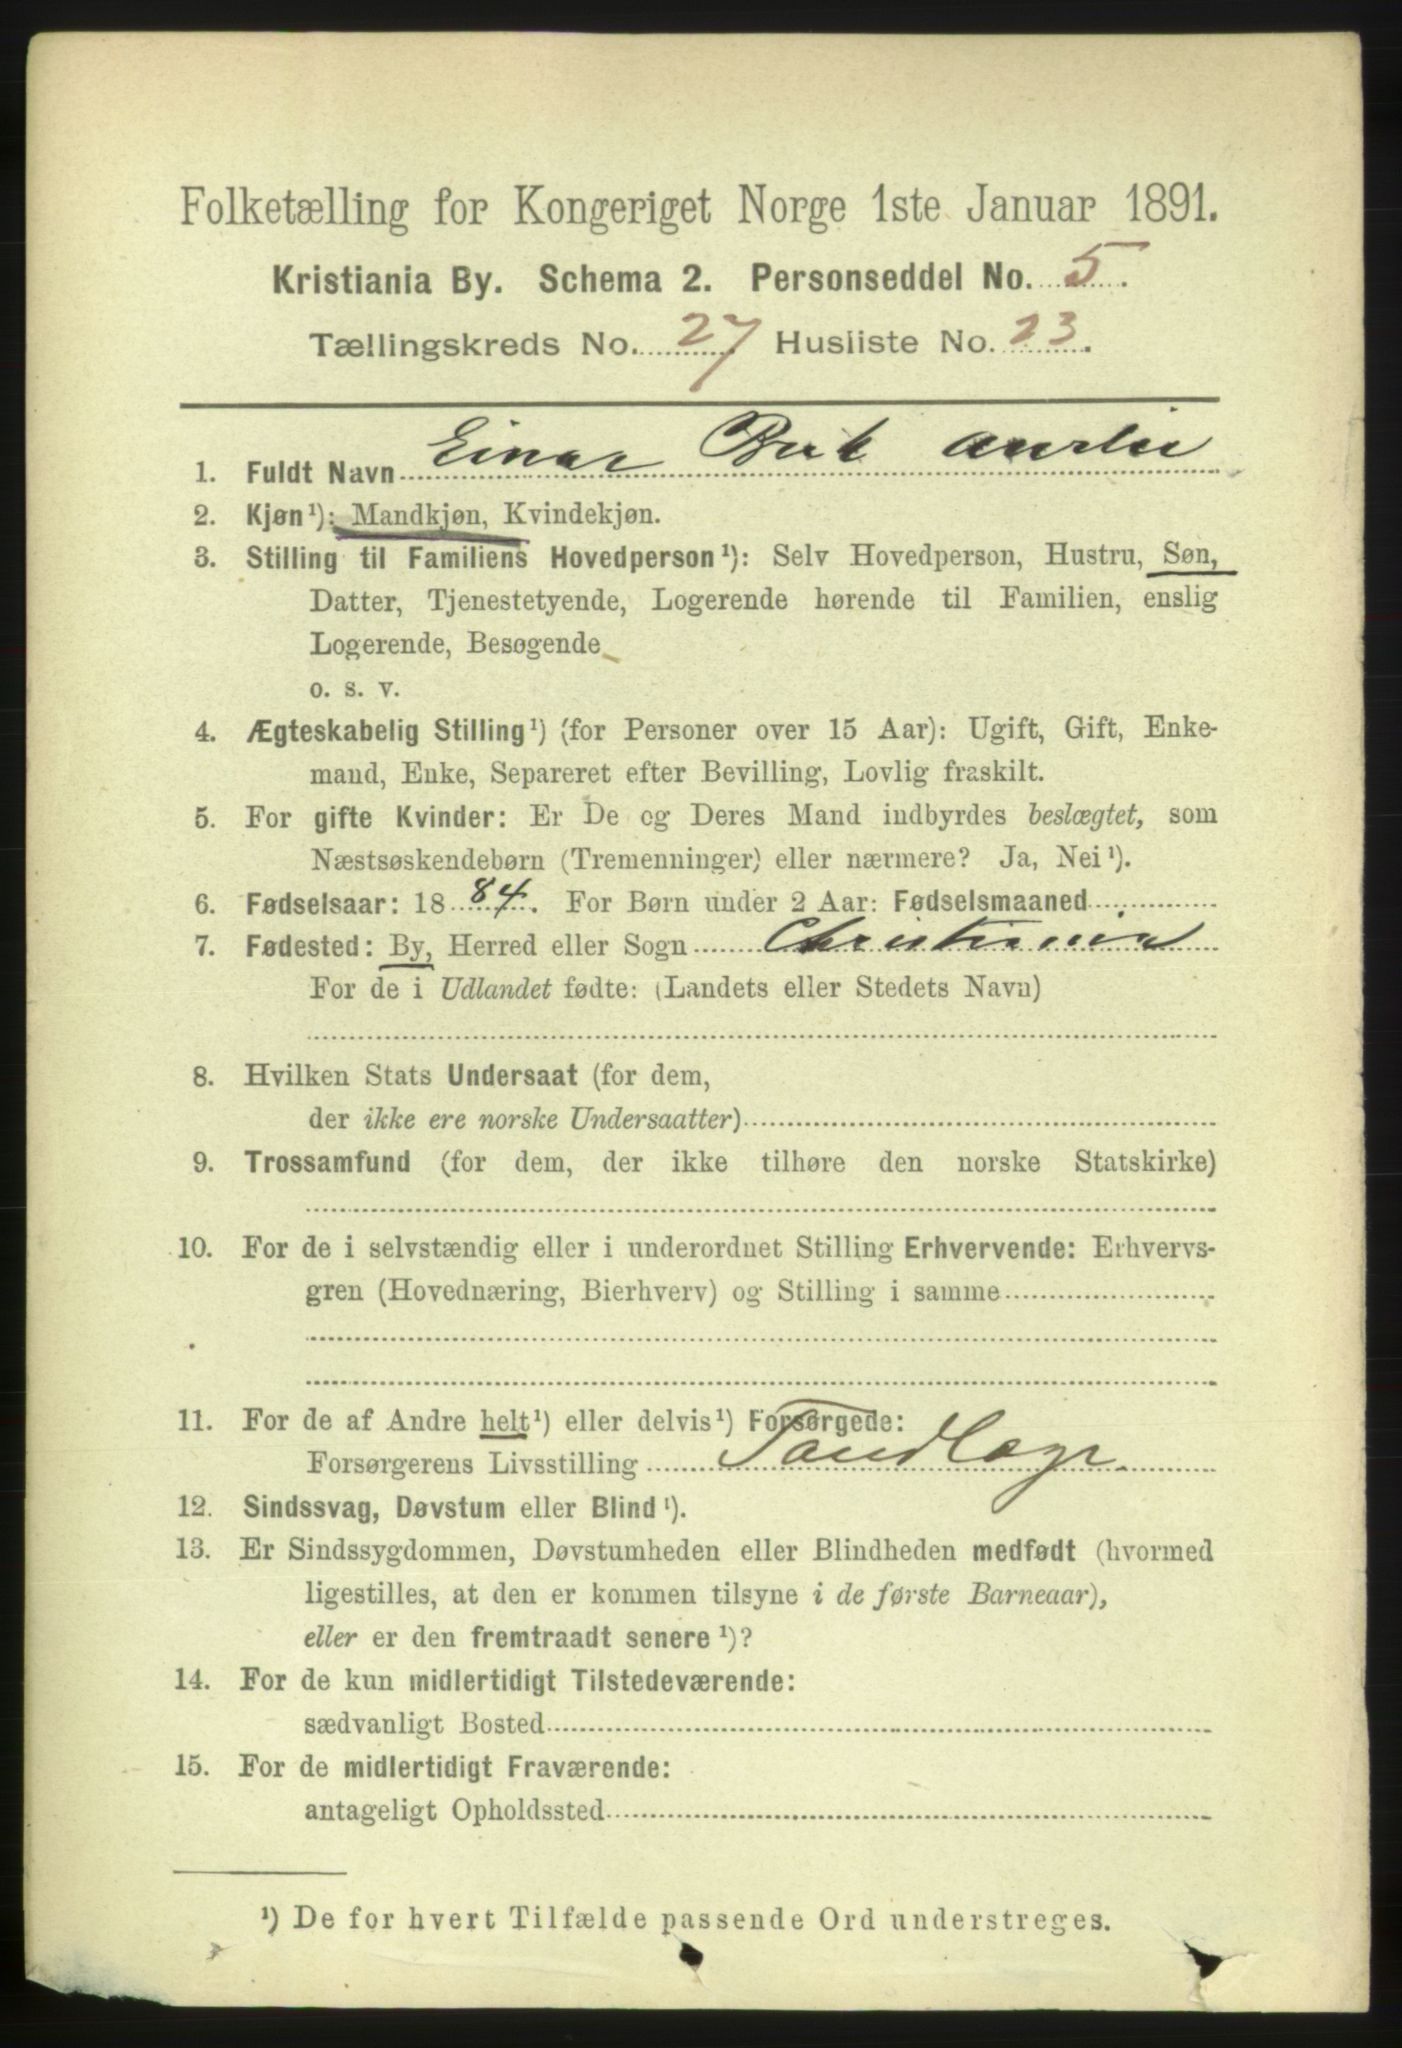 Folketælling for Kongeriget Norge 1ste Januar 1891.
Kristiania By. Schema 2. Personseddel No. 5.
Tællingskreds No. 27 Husliste No. 23.
1. Fuldt Navn Einar
2. Kjøn¹): Mandkjøn, Kvindekjøn.
3. Stilling til Familiens Hovedperson¹): Selv Hovedperson, Hustru, Søn,
Datter, Tjenestetyende, Logerende hørende til Familien, enslig
Logerende, Besøgende
o. s. v.
4. Ægteskabelig Stilling¹) (for Personer over 15 Aar): Ugift, Gift, Enke-
mand, Enke, Separeret efter Bevilling, Lovlig fraskilt.
5. For gifte Kvinder: Er De og Deres Mand indbyrdes beslægtet, som
Næstsøskendebørn (Tremenninger) eller nærmere? Ja, Nei¹).
6. Fødselsaar: 1884. For Børn under 2 Aar: Fødselsmaaned
7. Fødested: By, Herred eller Sogn Christiania
For de i Udlandet fødte: (Landets eller Stedets Navn)
8. Hvilken Stats Undersaat (for dem,
der ikke ere norske Undersaatter)
9. Trossamfund (for dem, der ikke tilhøre den norske Statskirke)
10. For de i selvstændig eller i underordnet Stilling Erhvervende: Erhvervs-
gren (Hovednæring, Bierhverv) og Stilling i samme
11. For de af Andre helt¹) eller delvis¹) Forsørgede:
Forsørgerens Livsstilling Tandlæge
12. Sindssvag, Døvstum eller Blind¹).
13. Er Sindssygdommen, Døvstumheden eller Blindheden medfødt (hvormed
ligestilles, at den er kommen tilsyne i de første Barneaar),
eller er den fremtraadt senere¹)?
14. For de kun midlertidigt Tilstedeværende:
sædvanligt Bosted
15. For de midlertidigt Fraværende:
antageligt Opholdssted
¹) De for hvert Tilfælde passende Ord understreges.